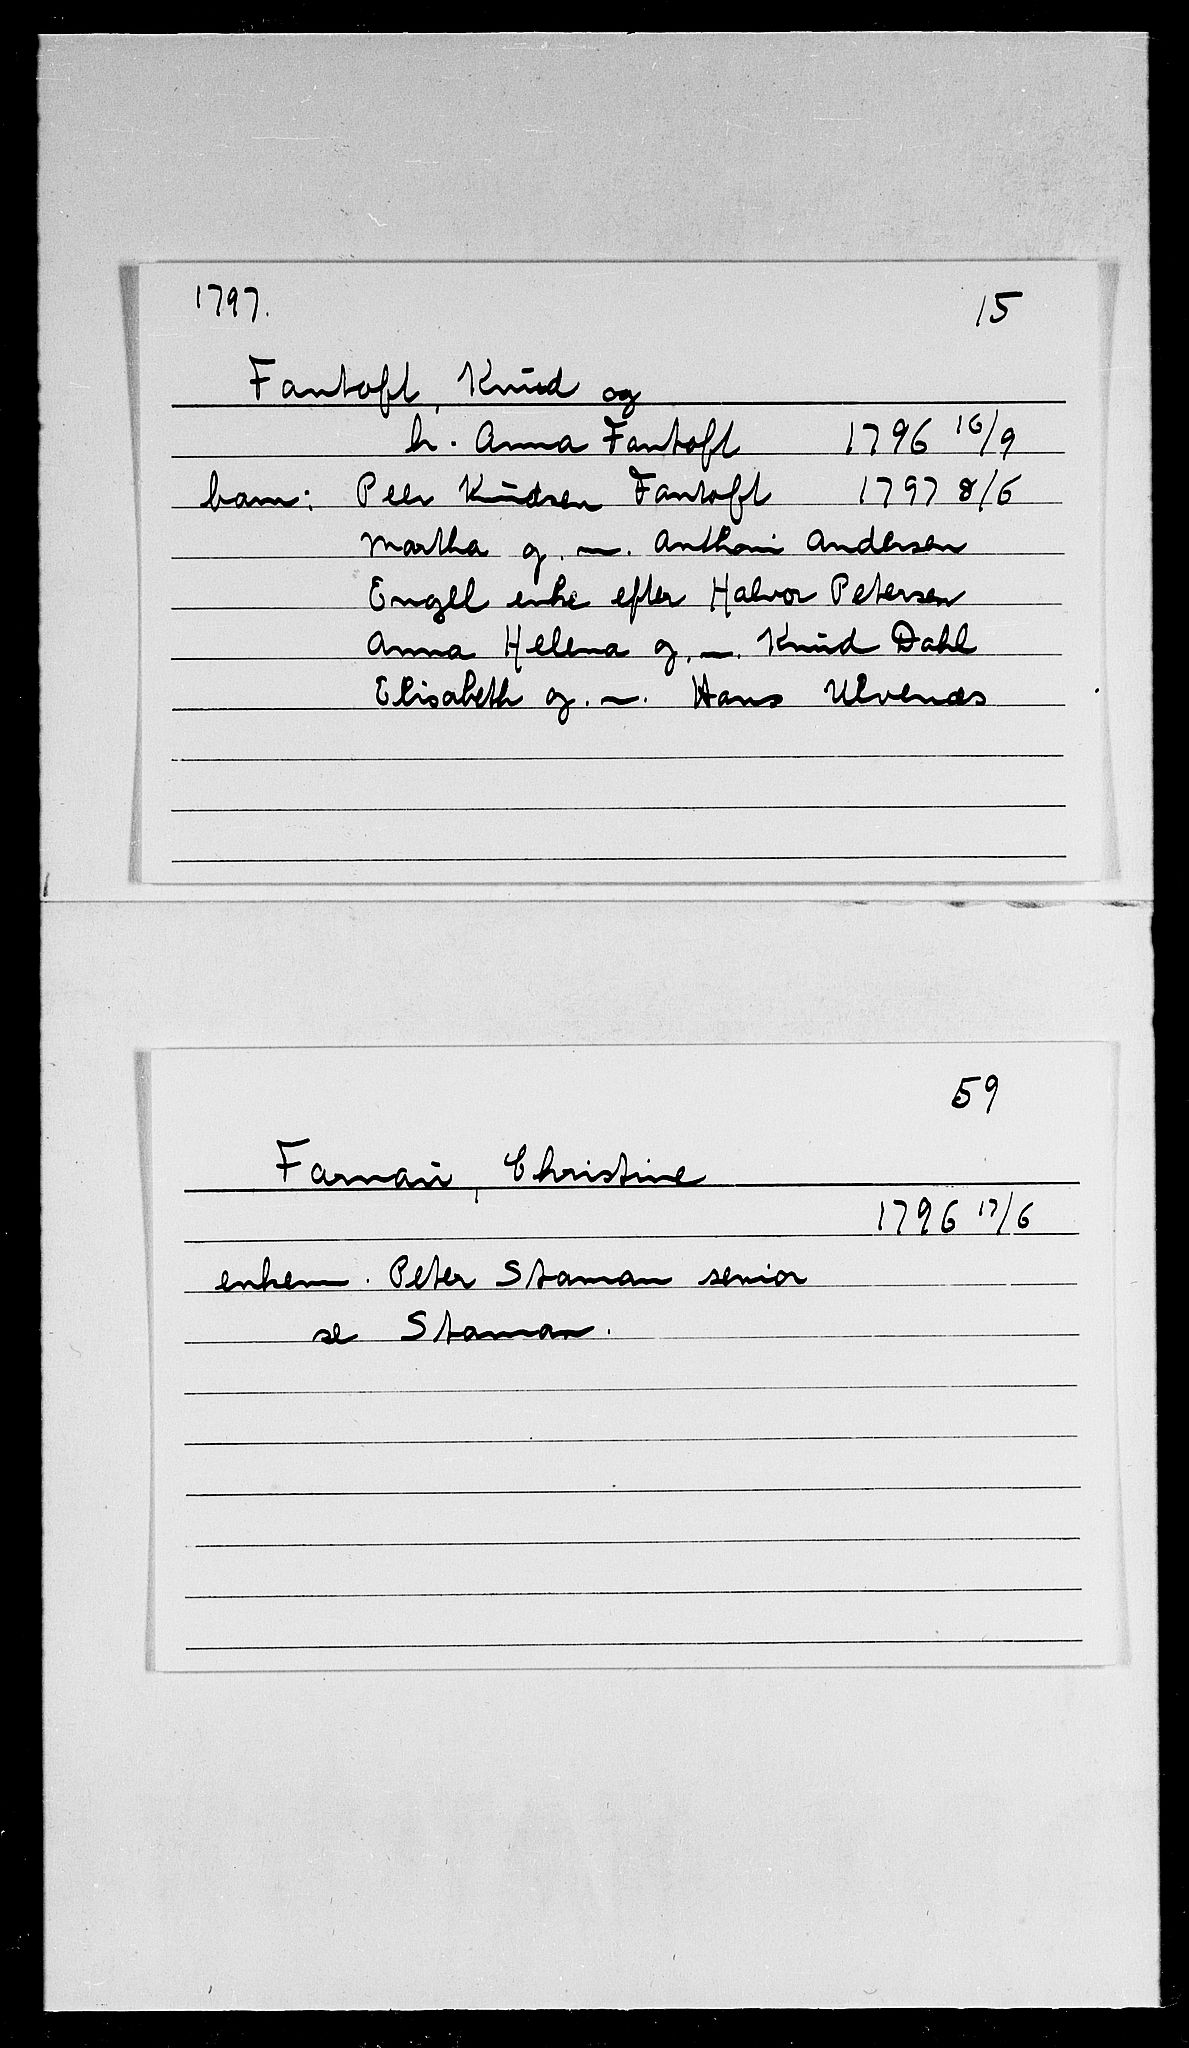 1797.
15
Fantoft, Knud og
h. Anna Fantoft 1796 16/9
barn: Peer Knudsen Fantoft 1797 8/6
Martha g. m. Anthoni Andersen
Engel enke efter Halvor Petersen
Anna Helena g. m. Knud Dahl
Elisabeth g. m. Hans Ulvenæs
59
Farnau, Christine
1796 17/6
enkem. Peter Staman senior
se Staman.